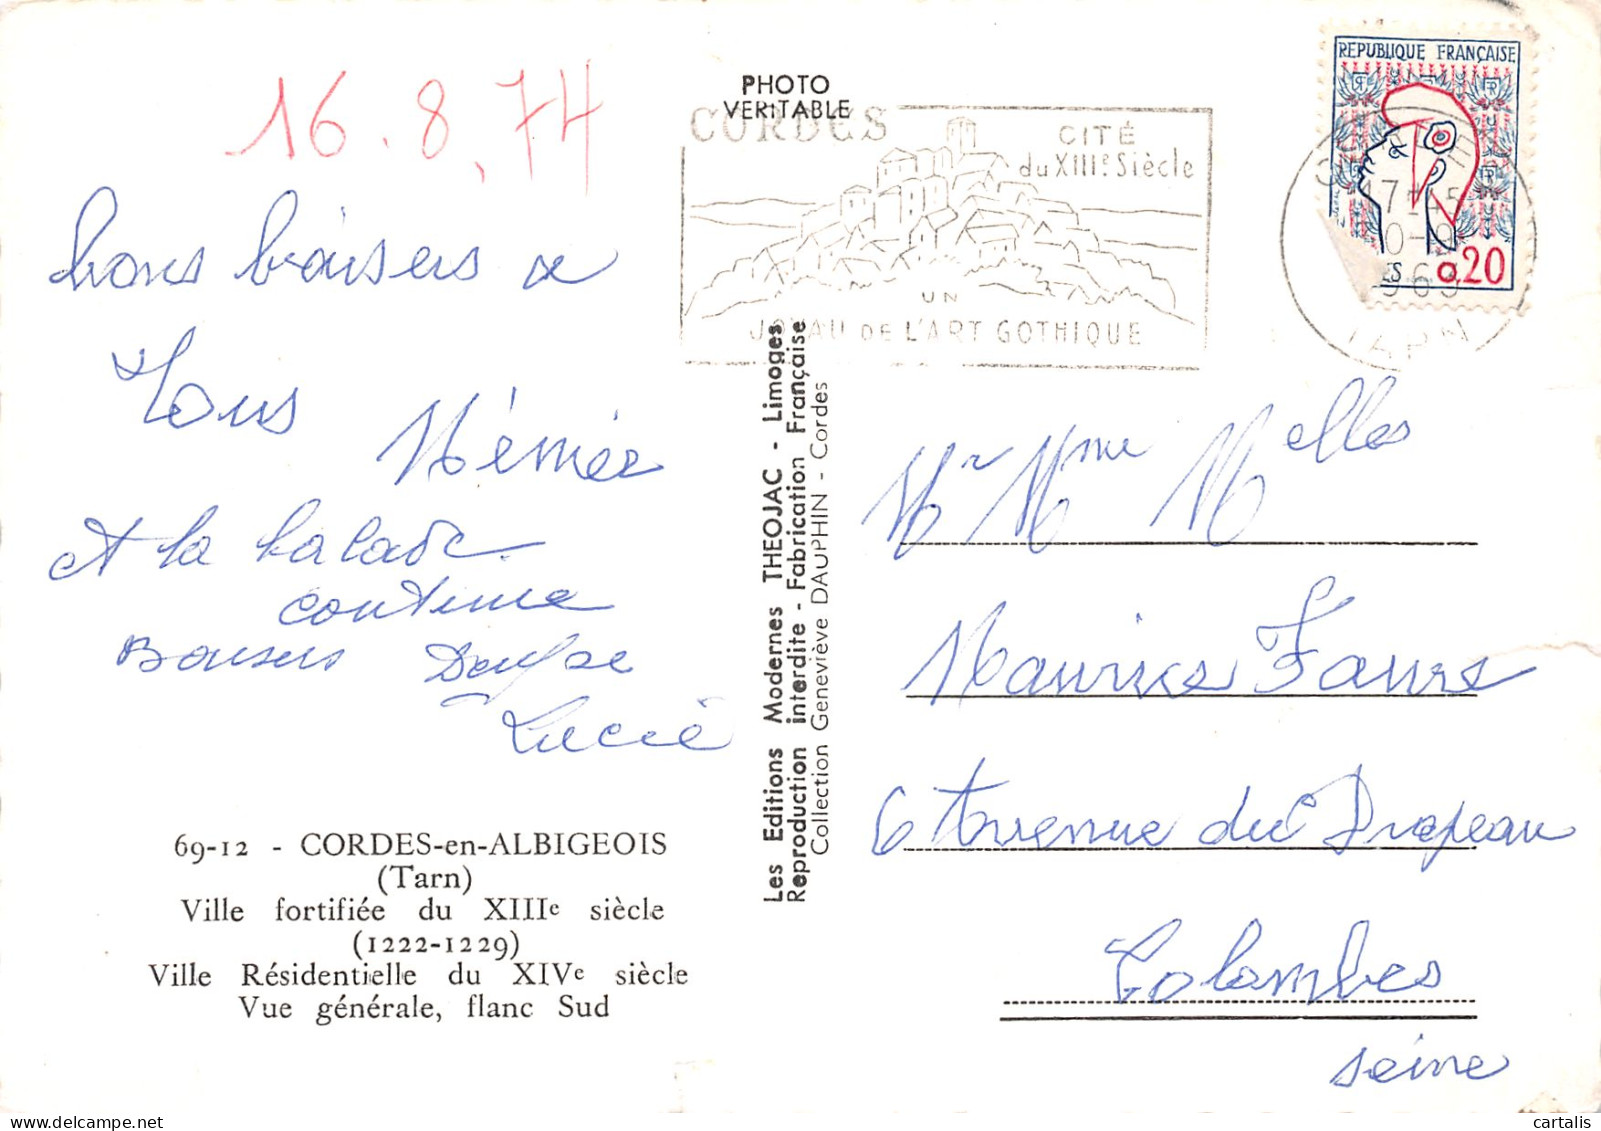 16.8.74
bons baisers a
Tous
Mémée
et la balade
continue
Baisers
Lucie
69-12 - CORDES-en-ALBIGEOIS
(Tarn)
Ville fortifiée du XIIIe siècle
(1222-1229)
Ville Résidentielle du XIVe siècle
Vue générale, flanc Sud
PHOTO
VERITABLE
Les Editions Modernes THEOJAC - Limoges
Reproduction interdite - Fabrication Française
Collection Geneviève DAUPHIN - Cordes
CORDES
CITÉ
du XIIIe Siècle
UN
JOYAU DE L'ART GOTHIQUE
REPUBLIQUE FRANÇAISE
0,20
17H45
TARN
Mr Mme Melles
Maurice Faure
6 Avenue du Drapeau
Colombes
Seine
cartalis
delcampe.net